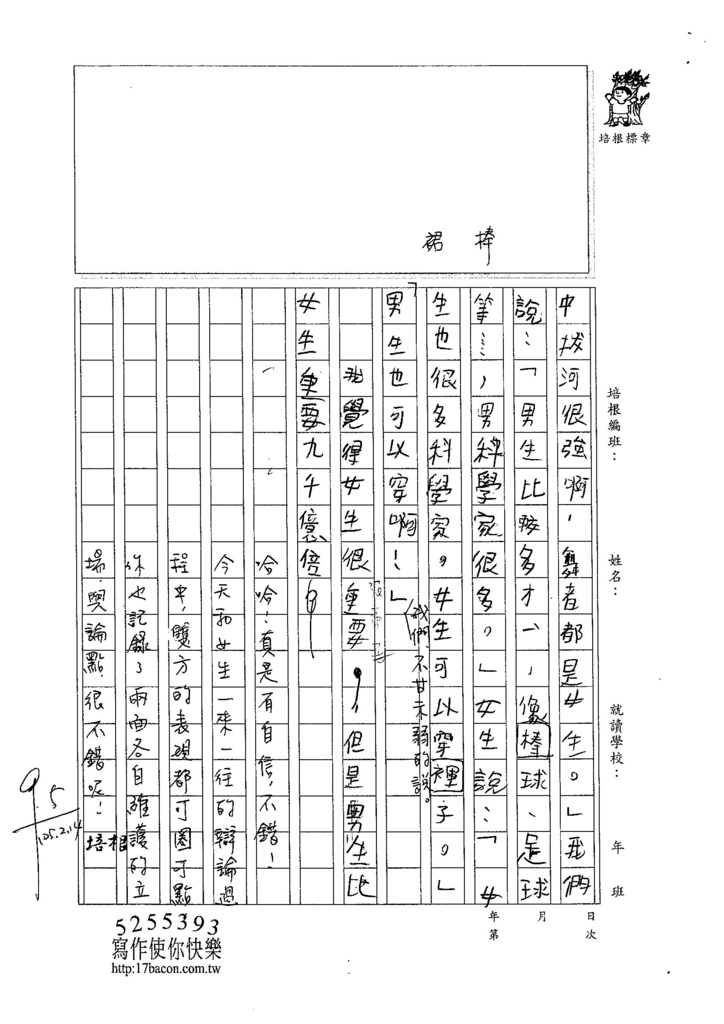 培根標章
棒
裙
培根編班：
姓名：
就讀學校：
年 班
月 日
年第 次
中拔河很強啊！舞者都是女生。」我們
說：「男生比較多才一，像棒球、足球
等……，男科學家很多。」女生說：「女
生也很多科學家。女生可以穿裡子。」
「男生也可以穿啊！」我們不甘未弱的說。
我覺得女生很重要，但是男生比
女生重要九千億倍。
哈哈！真是有自信，不錯！
今天和女生一來一往的辯論過
程中，雙方的表現都可圈可點，
你也記錄了兩面各自維護的立
場與論點，很不錯呢！
培根
95
105.2.14
5255393
寫作使你快樂
http:17bacon.com.tw